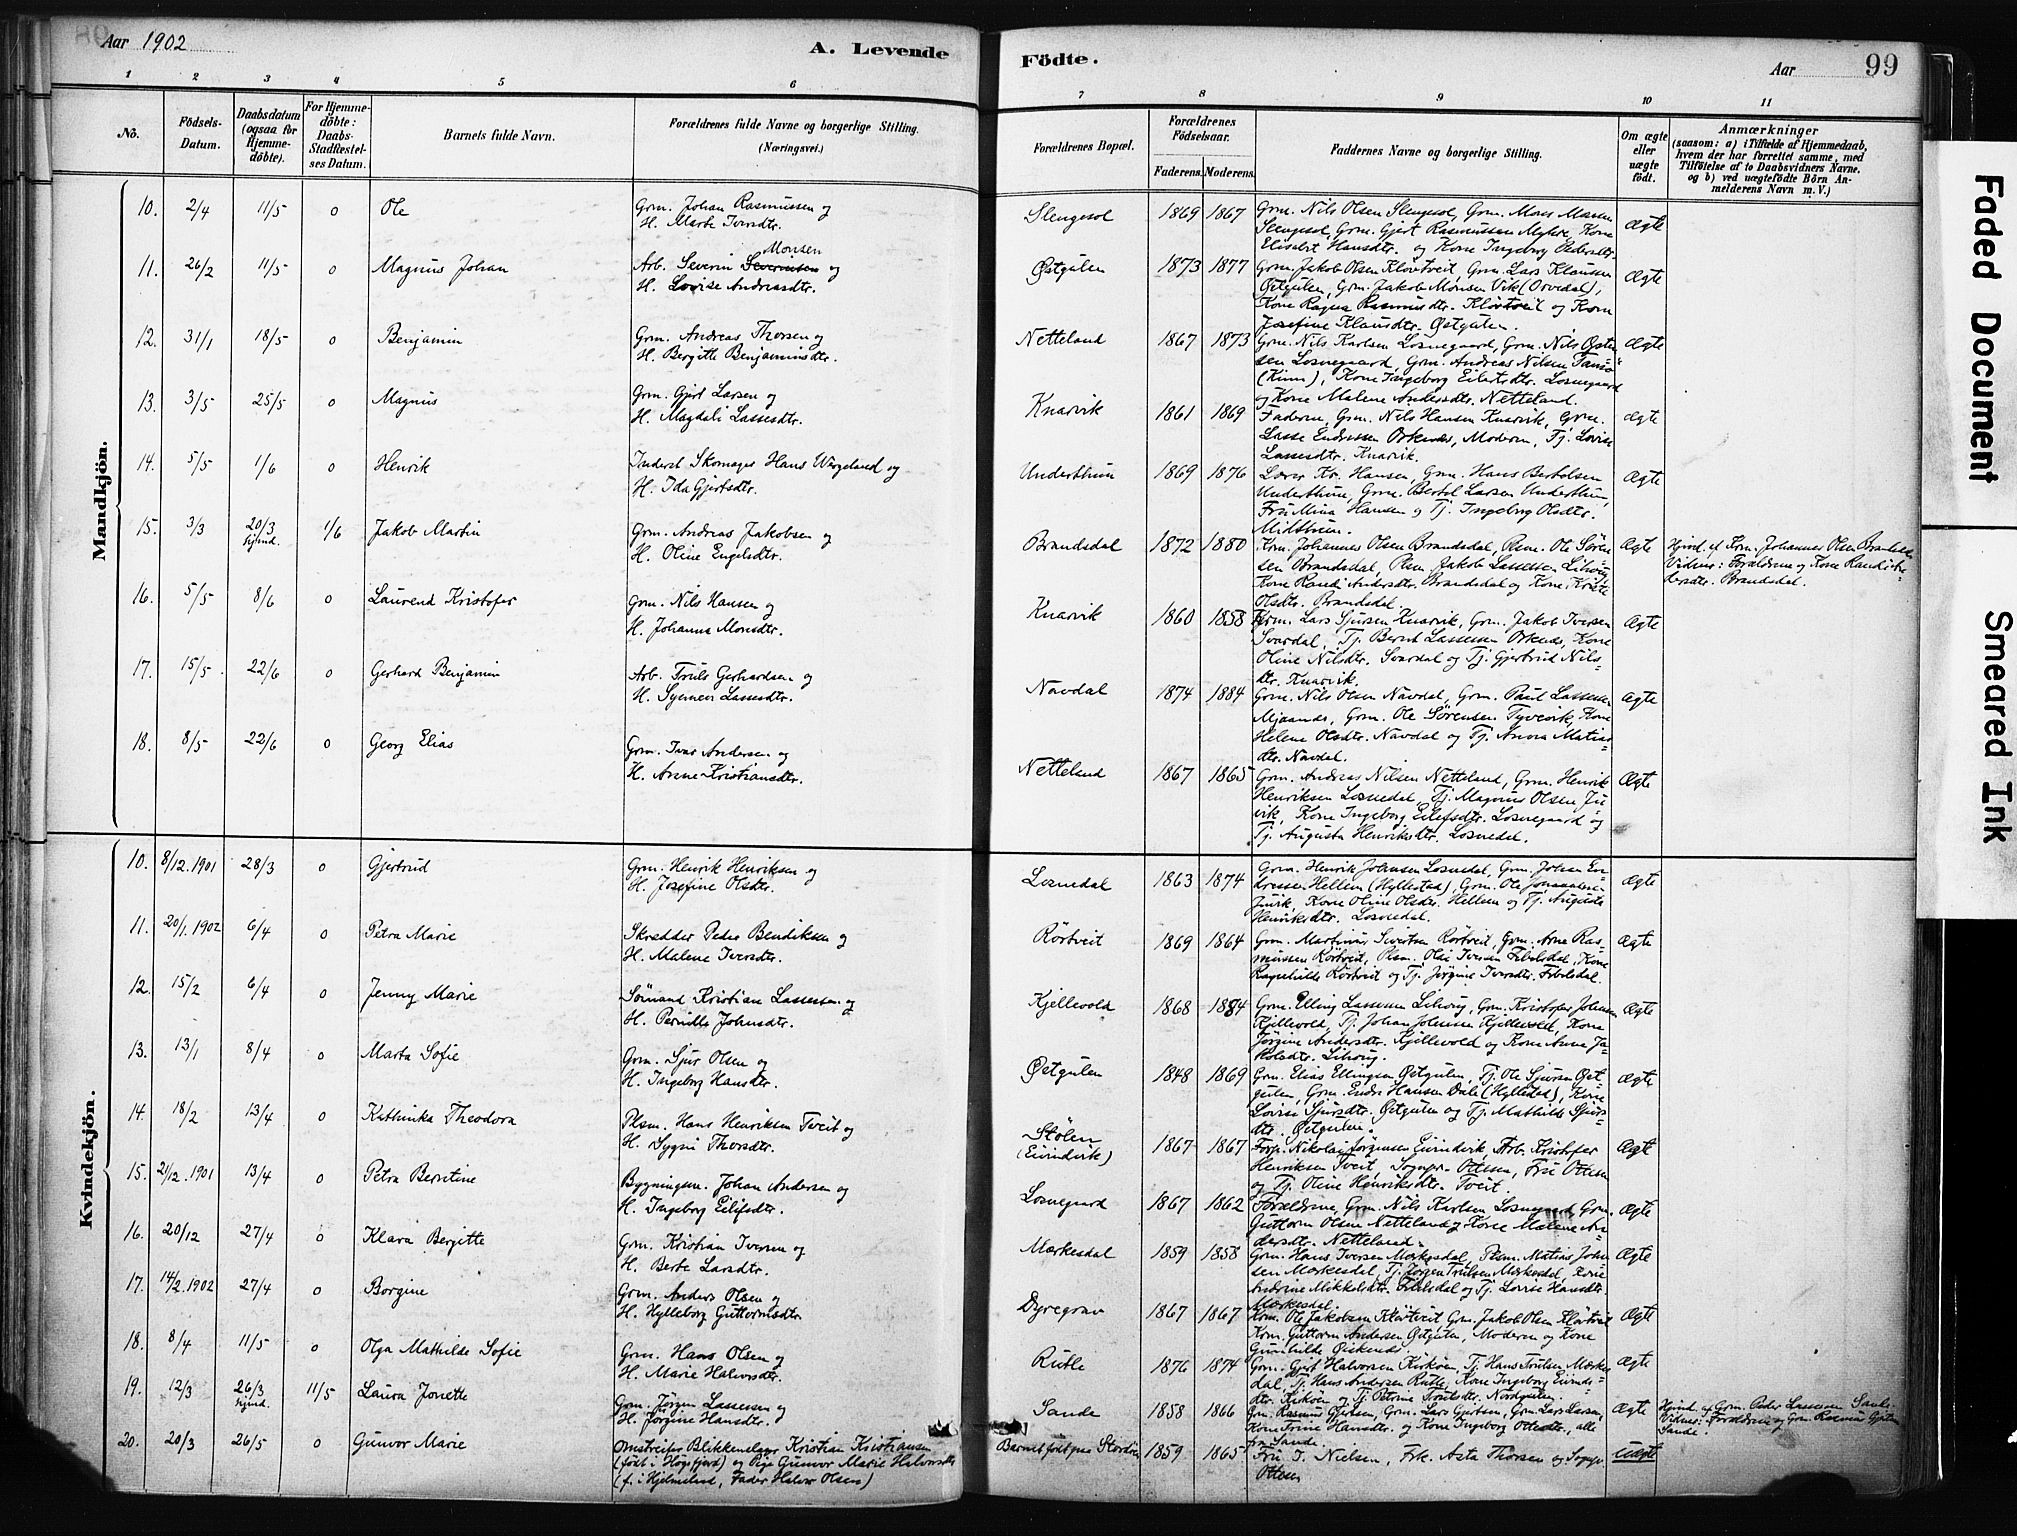 Aar 1902
A. Levende
Födte.
Aar
99
1 2 3 4 5 6 7 8 9 10 11
No.
Födsels-
Datum.
Daabsdatum
(ogsaa for
Hjemme-
döbte).
For Hjemme-
döbte:
Daabs-
Stadfæstel-
ses Datum.
Barnets fulde Navn.
Forældrenes fulde Navne og borgerlige Stilling.
(Næringsvei.)
Forældrenes Bopæl.
Forældrenes
Födselsaar.
Faderens. Moderens.
Faddernes Navne og borgerlige Stilling.
Om ægte
eller
uægte
födt.
Anmærkninger
(saasom: a) i Tilfælde af Hjemmedaab,
hvem der har forrettet samme, med
Tilföielse af to Daabsvidners Navne,
og b) ved uægtefödte Börn An-
melderens Navn m. V.)
Mandkjön.
10. 2/4 11/5 0 Ole
Grm. Johan Rasmussen og
H. Marte Iversdtr.
Slengesol 1869 1867
Grm. Nils Olsen Slengesol, Grm. Mons Monsen
Slengesol, Grm. Gjert Rasmussen, Kone
Elisabet Hansdtr. og Kone Ingeborg Pedersdtr.
Ægte
11. 26/2 11/5 0 Magnus Johan
Monsen
Arb. Severin Severinsen og
H. Lovise Andreasdtr.
Østgulen 1873 1877
Grm. Jakob Olsen Klövtveit, Grm. Lars Klausen
Østgulen, Grm. Jakob Monsen Vik (Orvedal),
Kone Ragna Rasmusdtr. Klövtveit og Kone
Josefine Klausdtr. Østgulen.
Ægte
12. 31/1 18/5 0 Benjamin
Grm. Andreas Thorsen og
H. Bergitte Benjaminsdtr.
Netteland 1867 1873
Grm. Nils Karlsen Losnegaard, Grm. Nils Østen-
sen Losnegaard, Grm. Andreas Nilsen Tansö
(Kinn), Kone Ingeborg Eilertsdtr. Losnegaard
og Kone Malene Andersdtr. Netteland.
Ægte
13. 3/5 25/5 0 Magnus
Grm. Gjert Larsen og
H. Magdali Lassesdtr.
Knarvik 1861 1869
Faderen, Grm. Nils Hansen Knarvik, Grm.
Lasse Endresen Orkenæs, Moderen, Tj. Lovise
Lassesdtr. Knarvik.
Ægte
14. 5/5 1/6 0 Henrik
Inderst Skomager Hans Wergeland og
H. Ida Gjertsdtr.
Underthun 1869 1876
Lærer Kr. Hansen, Grm. Hans Bertelsen
Underthun, Grm. Bertel Larsen Underthun,
Fru Mina Hansen og Tj. Ingeborg Olsdtr.
Midtthun.
Ægte
15. 3/3 20/3 hjmd. 1/6 Jakob Martin
Grm. Andreas Jakobsen og
H. Oline Engelsdtr.
Brandsdal 1872 1880
Krm. Johannes Olsen Brandsdal, Plsm. Ole Sören-
sen Brandsdal, Plsm. Jakob Lassesen Lihoug,
Kone Randi Andersdtr. Brandsdal og Kone Kristi
Olsdtr. Brandsdal.
Ægte
Hjmd. af Krm. Johannes Olsen Brandsdal.
Vidner: Forældrene og Kone Randi An-
dersdtr. Brandsdal.
16. 5/5 8/6 0 Laurend Kristofer
Grm. Nils Hansen og
H. Johanna Monsdtr.
Knarvik 1860 1858
Grm. Lars Sjursen Knarvik, Grm. Jakob Iversen
Svardal, Tj. Bernt Lassesen Orkenæs, Kone
Oline Nilsdtr. Svardal og Tj. Gjertrud Nils-
dtr. Knarvik.
Ægte
17. 15/5 22/6 0 Gerhard Benjamin
Arb. Truls Gerhardsen og
H. Synneve Lassesdtr.
Navdal 1874 1884
Grm. Nils Olsen Navdal, Grm. Paul Lassesen
Mjaanæs, Grm. Ole Sörensen Tyvevik, Kone
Helene Olsdtr. Navdal og Tj. Anna Matias-
dtr. Navdal.
Ægte
18. 8/5 22/6 0 Georg Elias
Grm. Ivar Andersen og
H. Anne Kristiansdtr.
Netteland 1867 1865
Grm. Andreas Nilsen Netteland, Grm. Henrik
Henriksen Losnedal, Tj. Magnus Olsen Ju-
vik, Kone Ingeborg Eilefsdtr. Losnegaard og
Tj. Augusta Henriksdtr. Losnedal.
Ægte
Kvindekjön.
10. 8/12.1901 28/3 0 Gjertrud
Grm. Henrik Henriksen og
H. Josefine Olsdtr.
Losnedal 1863 1874
Grm. Henrik Johansen Losnedal, Grm. Johan En-
dresen Hellem (Hyllestad), Grm. Ole
Juvik, Kone Oline Olsdtr. Hellem og Tj. Auguste
Henriksdtr. Losnedal.
Ægte
11. 20/1.1902 6/4 0 Petra Marie
Skrædder Peder Bendiksen og
H. Malene Iversdtr.
Rörtveit 1869 1864
Grm. Martinus Sivertsen Rörtveit, Grm. Arne Ras-
mussen Rörtveit, Plsm. Ole Iversen, Kone
Ragnhilda Rörtveit og Tj. Jörgine Iversdtr.
Ægte
12. 15/2 6/4 0 Jenny Marie
Sömand Kristian Lassesen og
H. Pernille Johnsdtr.
Kjellevold 1868 1884
Grm. Elling Lassesen Lihoug, Grm. Kristofer Johansen
Kjellevold, Tj. Johan Johnsen Kjellevold, Kone
Jörgine Andersdtr. Kjellevold og Kone Anna Ja-
kobsdtr. Lihoug.
Ægte
13. 13/1 8/4 0 Marta Sofie
Grm. Sjur Olsen og
H. Ingeborg Hansdtr.
Østgulen 1848 1869
Grm. Elias Ellingsen Østgulen, Tj. Ole Sjursen Øst-
gulen, Grm. Endre Hansen Dale (Hyllestad), Kone
Lovise Sjursdtr. Østgulen og Tj. Mathilde Sjurs-
dtr. Østgulen.
Ægte
14. 18/2 13/4 0 Kathinka Theodora
Plsm. Hans Henriksen Tveit og
H. Sygni Thorsdtr.
Stölen
(Eivindvik) 1867 1867
Forp. Nikolai Jörgensen Eivindvik, Arb. Kristofer
Henriksen Tveit, Sognepr. Ottesen, Fru Ottesen
og Tj. Oline Henriksdtr. Tveit.
Ægte
15. 21/12.1901 13/4 0 Petra Berntine
Bygningsm. Johan Andersen og
H. Ingeborg Eilifsdtr.
Losnegaard 1867 1862
Forældrene, Grm. Nils Karlsen Losnegaard, Grm.
Guttorm Olsen Netteland og Kone Malene An-
dersdtr. Netteland.
Ægte
16. 20/12 27/4 0 Klara Bergitte
Grm. Kristian Iversen og
H. Berte Larsdtr.
Mærkesdal 1859 1858
Grm. Hans Iversen Mærkesdal, Plsm. Matias John-
sen Mærkesdal, Tj. Jörgen Trulsen Mærkesdal, Kone
Andrine Mikkelsdtr. og Tj. Lovise Hansdtr.
Mærkesdal.
Ægte
17. 14/2.1902 27/4 0 Borgine
Grm. Anders Olsen og
H. Hylleborg Guttormsdtr.
Dyregrav 1867 1867
Krm. Ole Jakobsen Klövtveit, Grm. Jakob Olsen Klövtveit,
Krm. Guttorm Andersen Østgulen, Moderen og Kone
Gunhilde
Ægte
18. 8/4 11/5 0 Olga Mathilde Sofie
Grm. Hans Olsen og
H. Marie Halvorsdtr.
Rutle 1876 1874
Grm. Gjert Halvorsen Kirköen, Tj. Hans Trulsen Mærkes-
dal, Tj. Hans Andersen Rutle, Kone Ingeborg Eivinds-
dtr. Kirköen og Tj. Petrine Trulsdtr. Nordgulen.
Ægte
19. 12/3 26/3 hjmd. 11/5 Laura Jonette
Grm. Jörgen Lassesen og
H. Jörgine Hansdtr.
Sande 1858 1866
Grm. Rasmus Gjertsen, Grm. Lars Gjertsen, Grm. Lars Larsen,
Kone Trine Hansdtr. og Kone Ingeborg Ottesdtr., alle
fra Sande.
Ægte
Hjmd. af Grm. Peder Lassesen Sande.
Vidner: Forældrene og Grm. Rasmus Gjertsen
Sande.
20. 20/3 26/5 0 Gunvor Marie
Omstreifer Blikkenslager Kristian Kristiansen
(født i Høgsfjord) og Pige Gunvor Marie Halvorsdtr.
(f. i Hjelmeland, Fader Halvor Olsen)
Barnet født paa 1859 1865
Fru T. Nielsen, Frk. Asta Thorsen og Sognepr.
Ottesen
Uægte
Faded Document
Smeared Ink